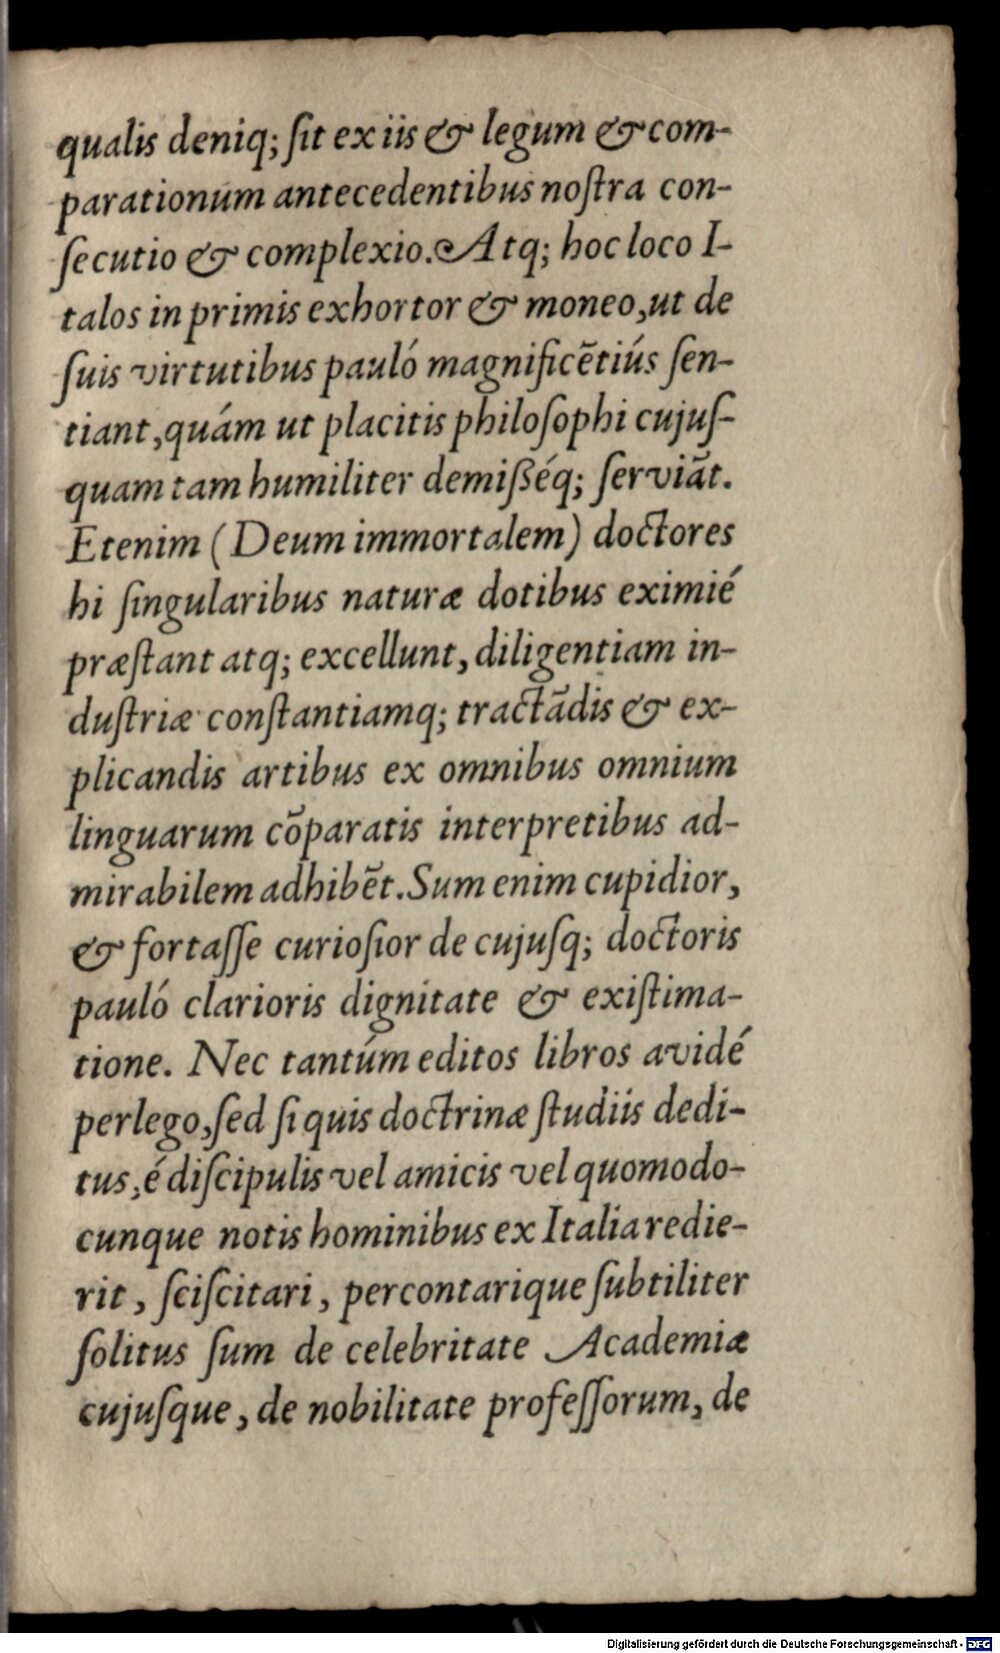 qualis deniq; ſit ex iis & legum & com-
parationum antecedentibus noſtra con-
ſecutio & complexio. Atq; hoc loco I-
talos in primis exhortor & moneo, ut de
ſuis virtutibus pauló magnificẽtiús ſen-
tiant, quám ut placitis philoſophi cujuſ-
quam tam humiliter demißéq; ſerviãt.
Etenim (Deum immortalem) doctores
hi ſingularibus naturæ dotibus eximié
præſtant atq; excellunt, diligentiam in-
duſtriæ conſtantiamq; tractãdis & ex-
plicandis artibus ex omnibus omnium
linguarum cõparatis interpretibus ad-
mirabilem adhibẽt. Sum enim cupidior,
& fortaſſe curioſior de cujuſq; doctoris
pauló clarioris dignitate & exiſtima-
tione. Nec tantúm editos libros avidé
perlego, ſed ſi quis doctrinæ ſtudiis dedi-
tus, é diſcipulis vel amicis vel quomodo-
cunque notis hominibus ex Italia redie-
rit, ſciſcitari, percontarique ſubtiliter
ſolitus ſum de celebritate Academiæ
cujuſque, de nobilitate profeſſorum, de
Digitalisierung gefördert durch die Deutsche Forschungsgemeinschaft - DFG